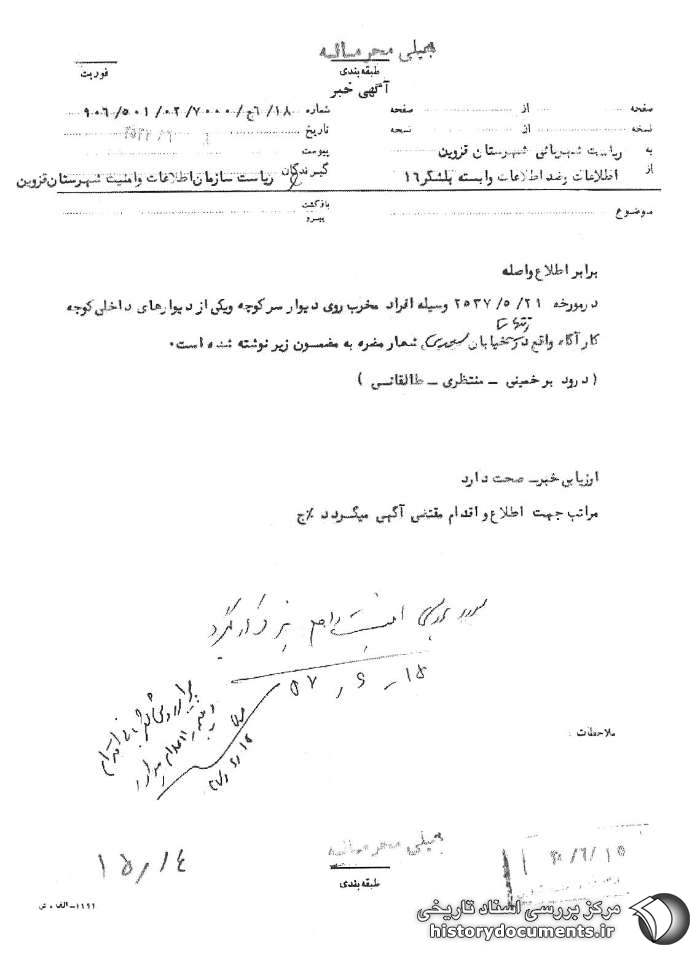 خیلی محرمانه
طبقه‌بندی
فوریت
آگهی خبر
صفحه از صفحه شماره ۹۰۶/۵۰۱/۰۲/۷۰۰۰/ج۶/۱۸
نسخه از نسخه تاریخ
به ریاست شهربانی شهرستان قزوین پیوست
از اطلاعات وضد اطلاعات وابسته بلشگر۱۶ گیرندگان ریاست سازمان اطلاعات وامنیت شهرستان قزوین
موضوع بازگشت
پیرو
برابر اطلاع واصله
درمورخه ۲۵۳۷/۵/۲۱ وسیله افراد مخرب روی دیوار سرکوچه ویکی از دیوارهای داخلی کوچه
کارآگاه واقع در خیابان شعار مضره به مضمون زیر نوشته شده است۰
(درود بر خمینی ــ منتظری ــ طالقانی)
ارزیابی خبرــ صحت دارد
مراتب جهت اطلاع و اقدام مقتضی آگهی میگردد %ج
قرار گیرد
۱۵ ـ ۶ ر ۵۷
ملاحظات :
۱۵٫۱۴
خیلی محرمانه
طبقه‌بندی
۱۱۲۱ـ الف ۰ ش
۳۰/۶/۱۵
مرکز بررسی اسناد تاریخی
historydocuments.ir